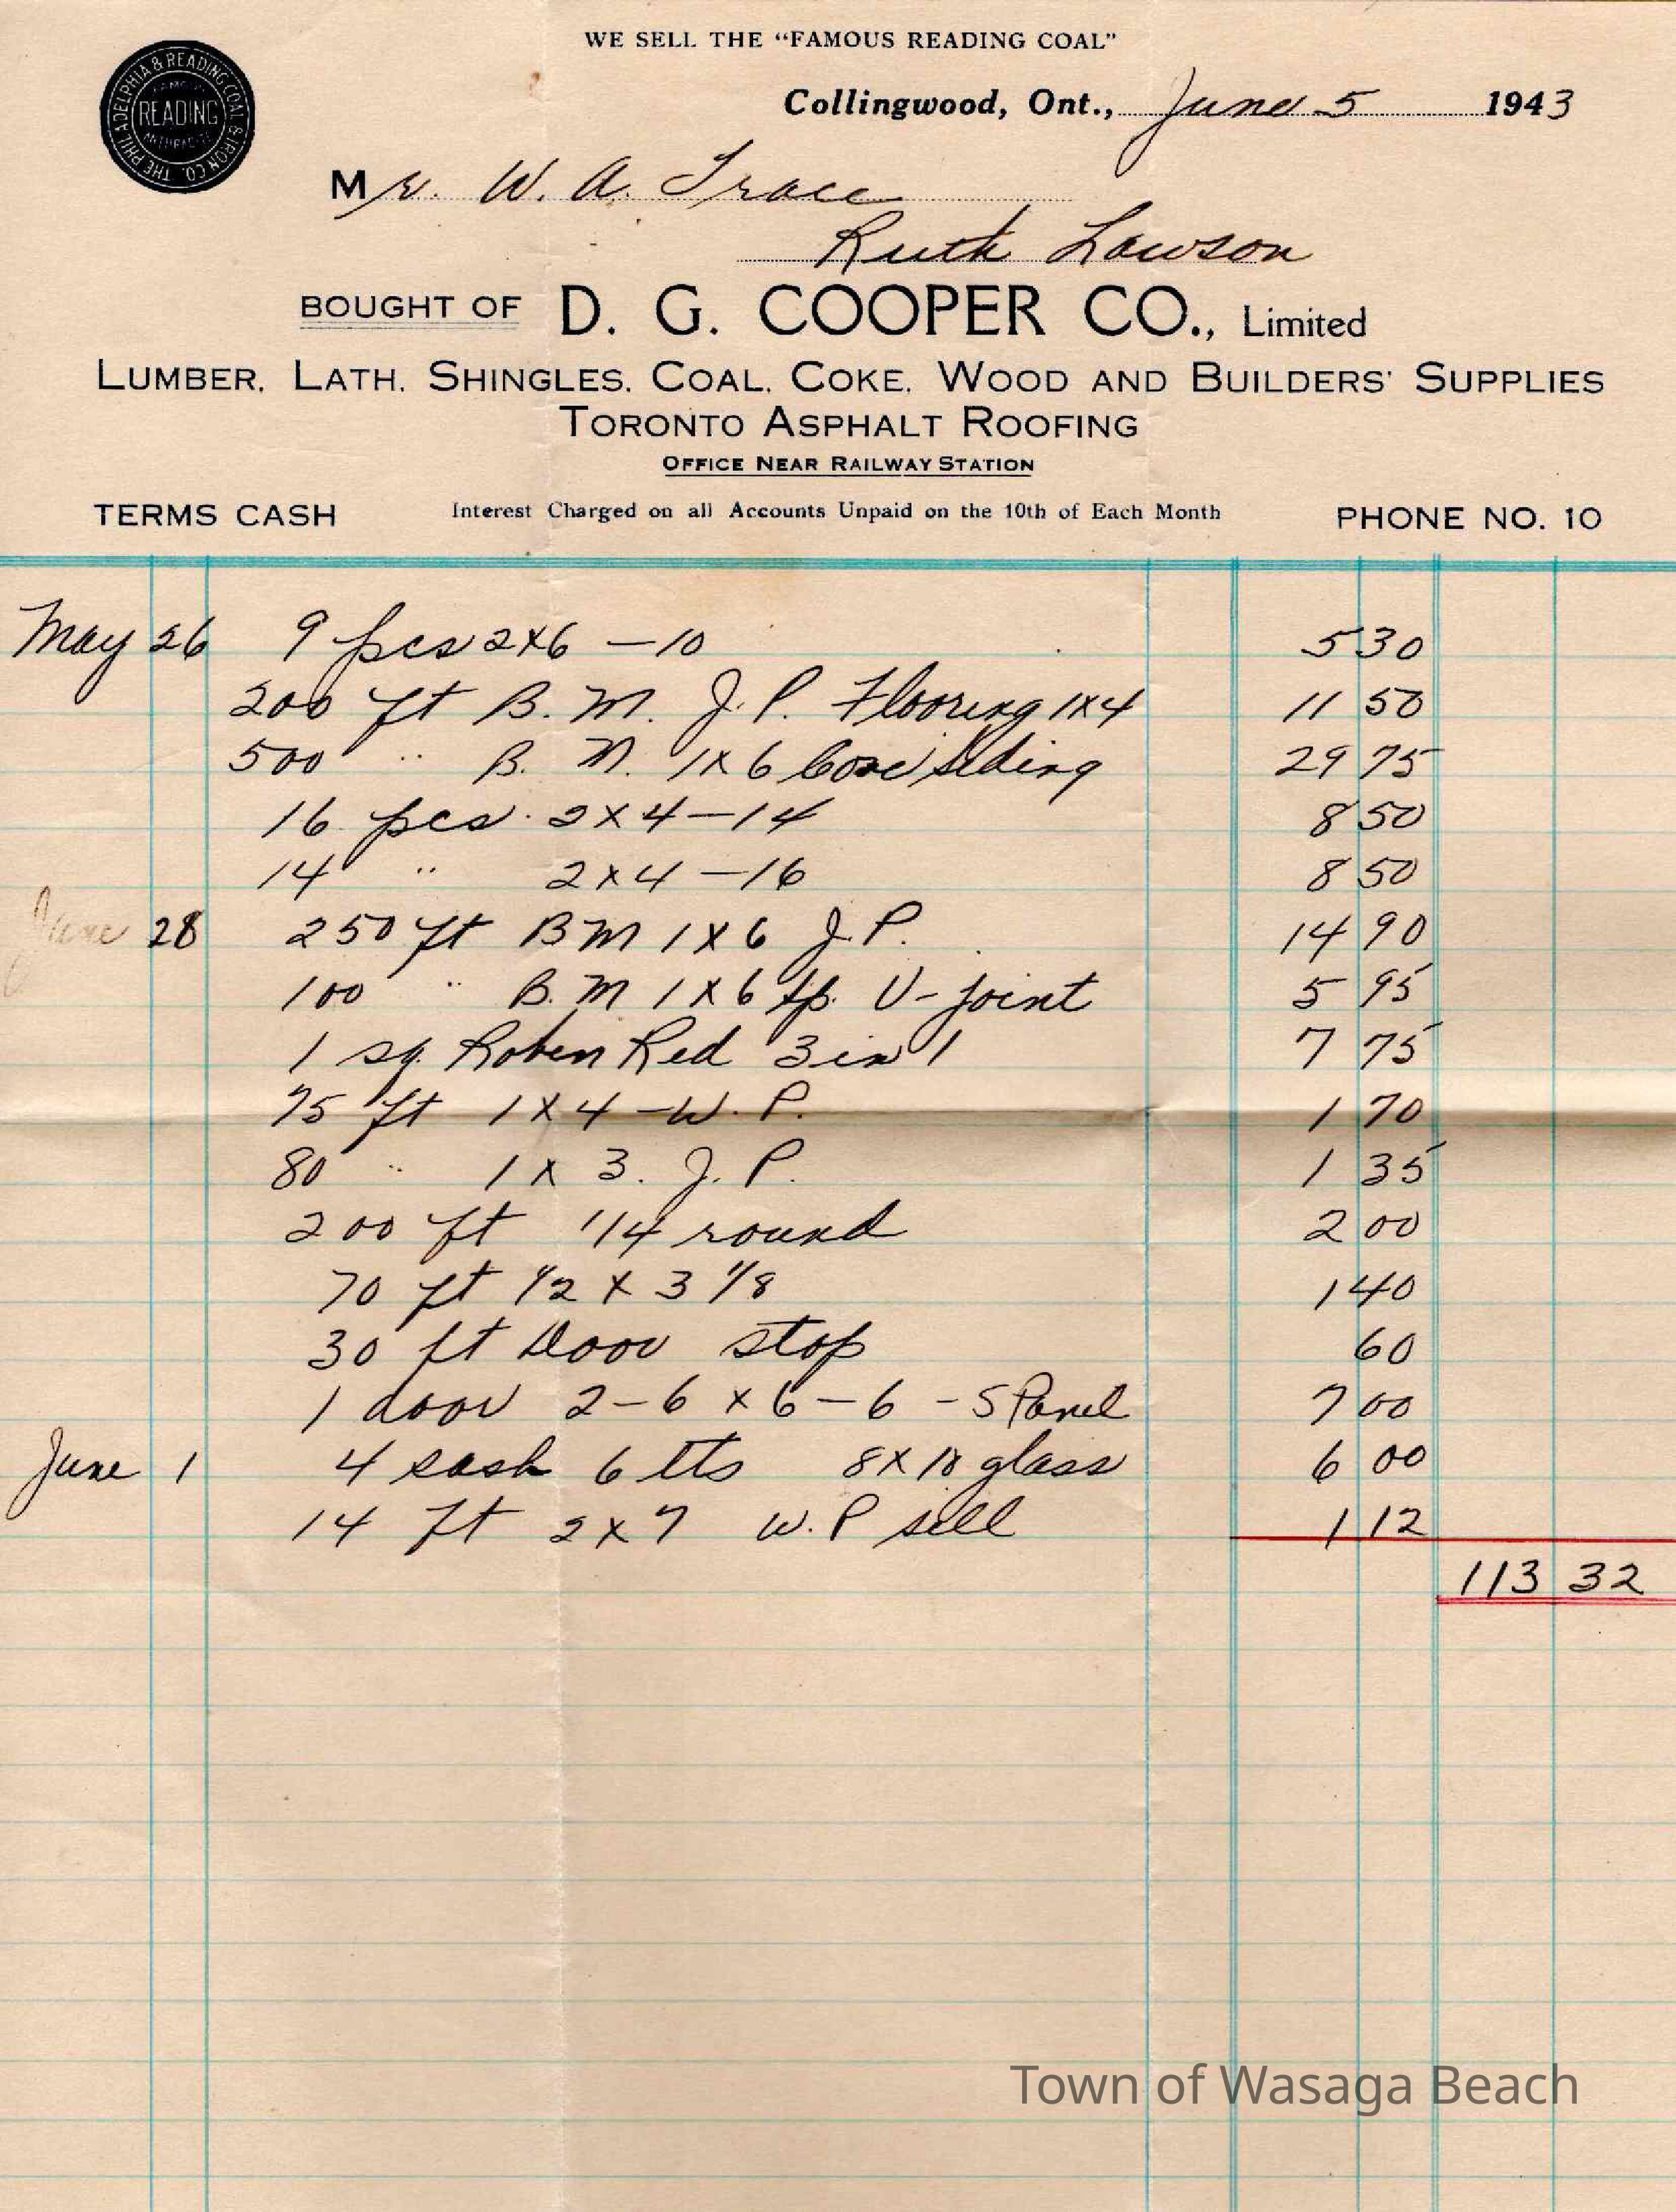 WE SELL THE "FAMOUS READING COAL"
THE PHILADELPHIA & READING COAL & IRON CO.
FAMOUS
READING
ANTHRACITE
Collingwood, Ont., June 5 1943
Mr. W. A. Trace
Ruth Lawson
BOUGHT OF D. G. COOPER CO., Limited
LUMBER, LATH, SHINGLES, COAL, COKE, WOOD AND BUILDERS' SUPPLIES
TORONTO ASPHALT ROOFING
OFFICE NEAR RAILWAY STATION
TERMS CASH Interest Charged on all Accounts Unpaid on the 10th of Each Month PHONE NO. 10
May 26 9 pcs 2x6 - 10 5 30
200 ft B. M. J. P. Flooring 1x4 11 50
500 " B. M. 1x6 Cove Siding 29 75
16 pcs. 2x4-14 8 50
14 " 2x4-16 8 50
June 28 250 ft BM 1x6 J.P. 14 90
100 " B.M 1x6 sp. V-joint 5 95
1 sq. Roben Red 3 in 1 7 75
75 ft 1x4-W.P. 1 70
80 " 1x3. J.P. 1 35
200 ft 1/4 round 2 00
70 ft 1/2 x 3 1/8 1 40
30 ft Door stop 60
1 door 2-6 x 6-6 - 5 Panel 7 00
June 1 4 sash 6 lts 8x10 glass 6 00
14 ft 2x7 W.P sill 1 12
113 32
Town of Wasaga Beach